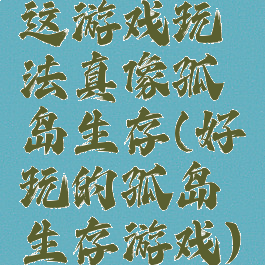 这游戏玩
法真像孤
岛生存(好
玩的孤岛
生存游戏)